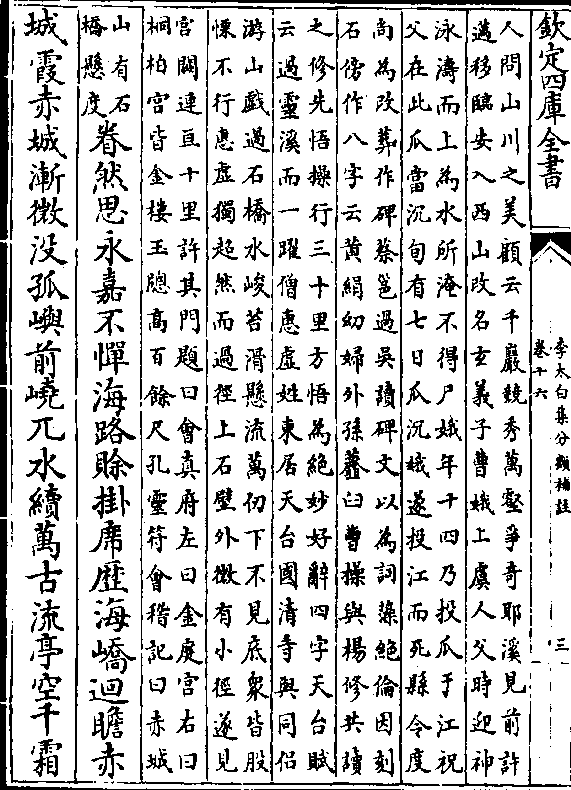 欽定四庫全書
李太白集分類補註
卷十六
三
人問山川之美顧云千巖競秀萬壑爭奇耶溪見前許
邁移臨安入西山改名玄義子曹娥上虞人父時迎神
泳濤而上為水所淹不得尸娥年十四乃投瓜于江祝
父在此瓜當沉旬有七日瓜沉娥遂投江而死縣令度
尚為改葬作碑蔡邕過吳讀碑文以為詞藻絕倫因刻
石傍作八字云黃絹幼婦外孫虀臼曹操與楊修共讀
之修先悟操行三十里方悟為絶妙好辭四字天台賦
云過靈溪而一躍僧惠虛姓東居天台國清寺與同侶
游山戲過石橋水峻苔滑懸流萬仞下不見底衆皆股
慄不行惠虛獨超然而過徑上石壁外微有小徑遂見
宮闕連亘十里許其門題曰會真府左曰金虔宮右曰
桐柏宮皆金樓玉牕高百餘尺孔靈符會稽記曰赤城
山有石
橋懸度
眷然思永嘉不憚海路賒掛席歷海嶠迴瞻赤
城霞赤城漸微没孤嶼前嶢兀水續萬古流亭空千霜